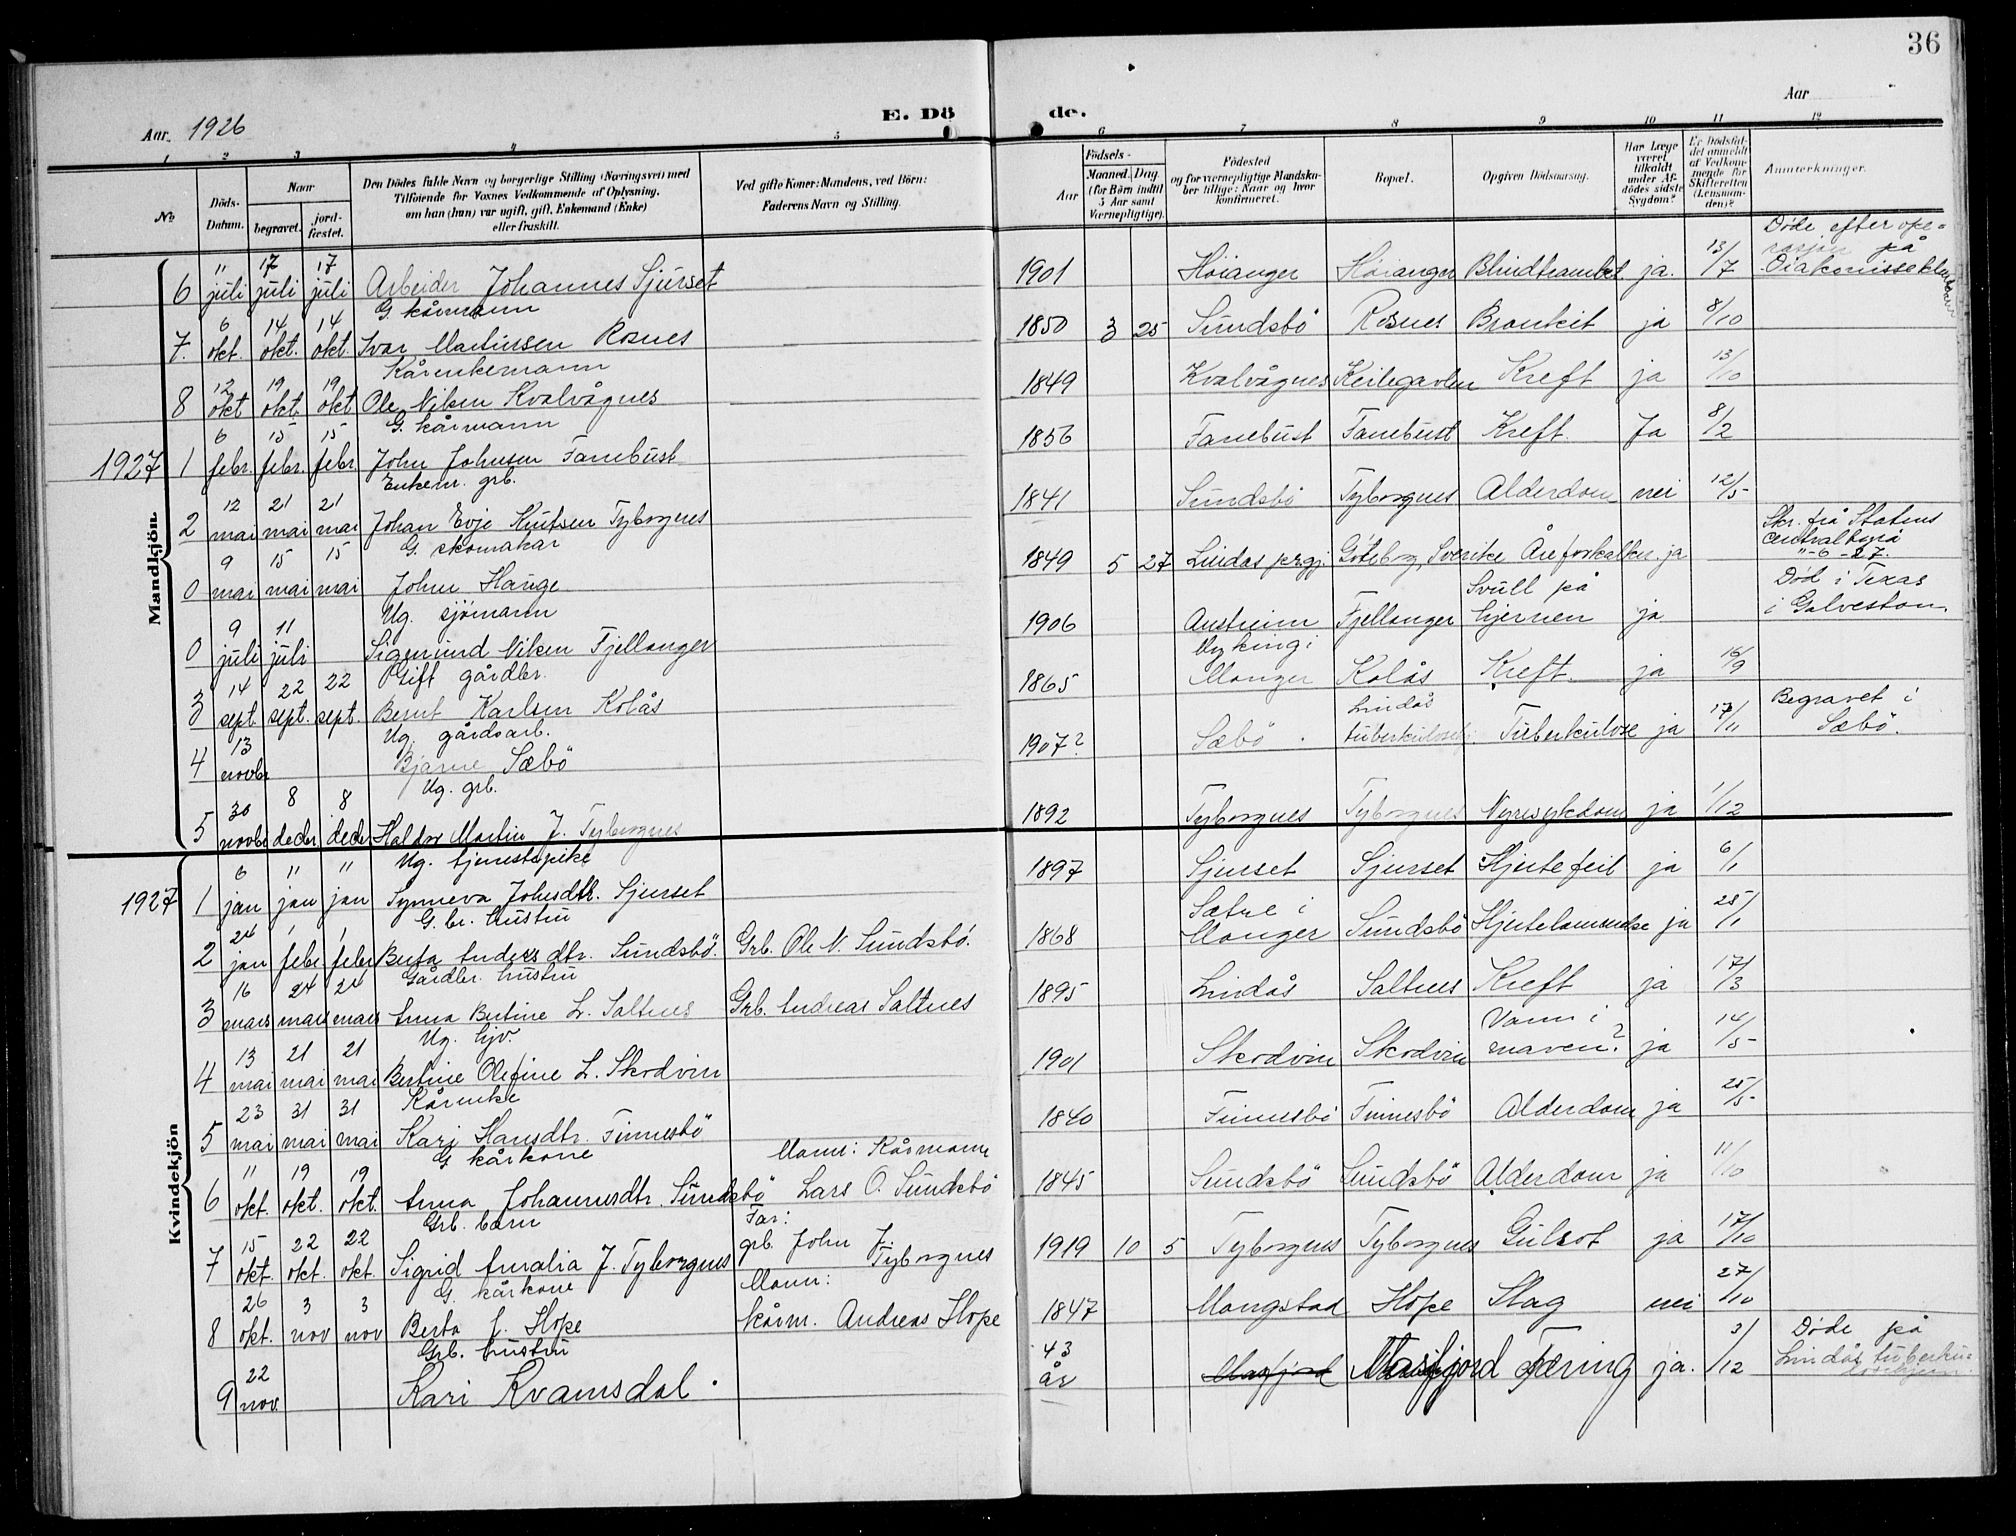 36
Aar. 1926
E. Dö
de.
Aar
1 2 3 4 5
6 7 8 9 10 11 12
No
Döds-
Datum.
Naar
begravet.
jord-
fæstet.
Den Dödes fulde Navn og borgerlige Stilling (Næringsvei) med
Tilföiende for Voxnes Vedkommende af Oplysning,
om han (hun) var ugift, gift, Enkemand (Enke)
eller fraskilt.
Ved gifte Koner: Mandens, ved Börn:
Faderens Navn og Stilling.
Födsels-
Aar
Maaned. Dag.
(for Börn indtil
5 Aar samt
Værnepligtige).
Födested
og for værnepligtige Mandska-
ber tillige: Naar og hvor
konfirmeret.
Bopæl.
Opgiven Dödsaarsag.
Har Læge
været
tilkaldt
under Af-
dödes sidste
Sygdom?
Er Dödsfal-
det anmeldt
af Vedkom-
mende for
Skifteretten
(Lensman-
den)?
Anmærkninger.
Mandkjön.
6 11 juli 17 juli 17 juli Arbeider Johannes Sjurset 1901 Höianger Höianger Blindtarmbet. ja. 13/7 Döde efter ope-
rasjon på
Diakonisse
G. kårmann
7. 6 okt. 14 okt. 14 okt. Ivar Martinsen Rosnes 1850 3 25 Sundsbö Rosnes Bronkit ja 8/10
Kårenkemann
8 12 okt 19 okt. 19 okt Ole Nilsen Kvalvågnes 1849 Kvalvågnes Keilegavlen Kreft ja 13/10
G. kårmann
1927 1 6 febr. 15 febr. 15 febr John Johnsen Fanebust 1856 Fanebust Fanebust Kreft. Ja 8/2
Enkem. grb.
2 12 mai 21 mai 21 mai Johan Evje Knutsen Tyborgnes 1841 Sundsbö Tyborgnes Alderdom nei 12/5
G. skomakar
0 9 mai 15 mai 15 mai John Hauge 1849 5 27 Lindås prgj. Göteborg, Sverike Åreforkalkn. ja Skr. frå Statens
Centralbyrå
"-6-27.
Ug. sjömann
0 9 juli 11 juli Sigmund Nilsen Fjellanger 1906 Austreim Fjellanger Svull på
hjernen ja Död i Texas
i Galveston
Gift gårdbr.
3 14 sept. 22 sept. 22 sept. Bernt Karlsen Kolås 1865 Myking i
Manger Kolås Kreft. ja 16/9
Ug. gårdsarb.
4 13 novbr Bjarne Sæbö 1907? Sæbö Lindås
Tuberkulose ja 17/11 Begravet i
Sæbö.
Ug. grb.
5 30 novbr 8 decbr 8 decbr Haldor Martin J. Tyborgnes 1892 Tyborgnes Tyborgnes Nyresykdom ja 1/12
Kvindekjön
Ug. tjenestepike
1927 1 6 jan 11 jan 11 jan Synneva Johnsdtr. Sjurset 1897 Sjurset Sjurset Hjertefeil ja 6/1
G. br. hustru
2 24 jan 1 febr. 1 febr Berta Andersdtr. Sundsbö. Grb. Ole N. Sundsbö. 1868 Sætre i
Manger Sundsbö Hjertelammelse ja 25/1
Gårdbr. hustru
3 16 mars 24 mars 24 mars Anna Bertine L. Saltnes Grb. Andreas Saltnes 1895 Lindås Saltnes Kreft ja 17/3
Ug. tjv.
4 13 mai 21 mai 21 mai Bertine Olefine L. Skodvin 1901 Skodvin Skodvin Vann i
maven? ja 14/5
Kårenke
5 23 mai 31 mai 31 mai Kari Hansdtr. Finnesbö 1840 Finnesbö Finnesbö Alderdom ja 25/5
G kårkone
6 11 okt. 19 okt. 19 okt. Anna Johannesdtr. Sundsbö Mann: Kårmann
Lars O. Sundsbö 1845 Sundsbö Sundsbö Alderdom ja 11/10
Grb. barn
7 15 okt. 22 okt. 22 okt. Sigrid Amalia J. Tyborgnes Far:
grb. John J.
Tyborgnes 1919 10 5 Tyborgnes Tyborgnes Gulsot ja 17/10
G. kårkone
8 26 okt. 3 nov 3 nov Berta Hope Mann:
kårm. Andreas Hope 1847 Mongstad Hope Slag nei 27/10
Grb. hustru
9 22 nov. Kari Kvamsdal. 43
år Masfjord Masfjord Tæring ja. 3/12 Döde på
Lindås tuberku-